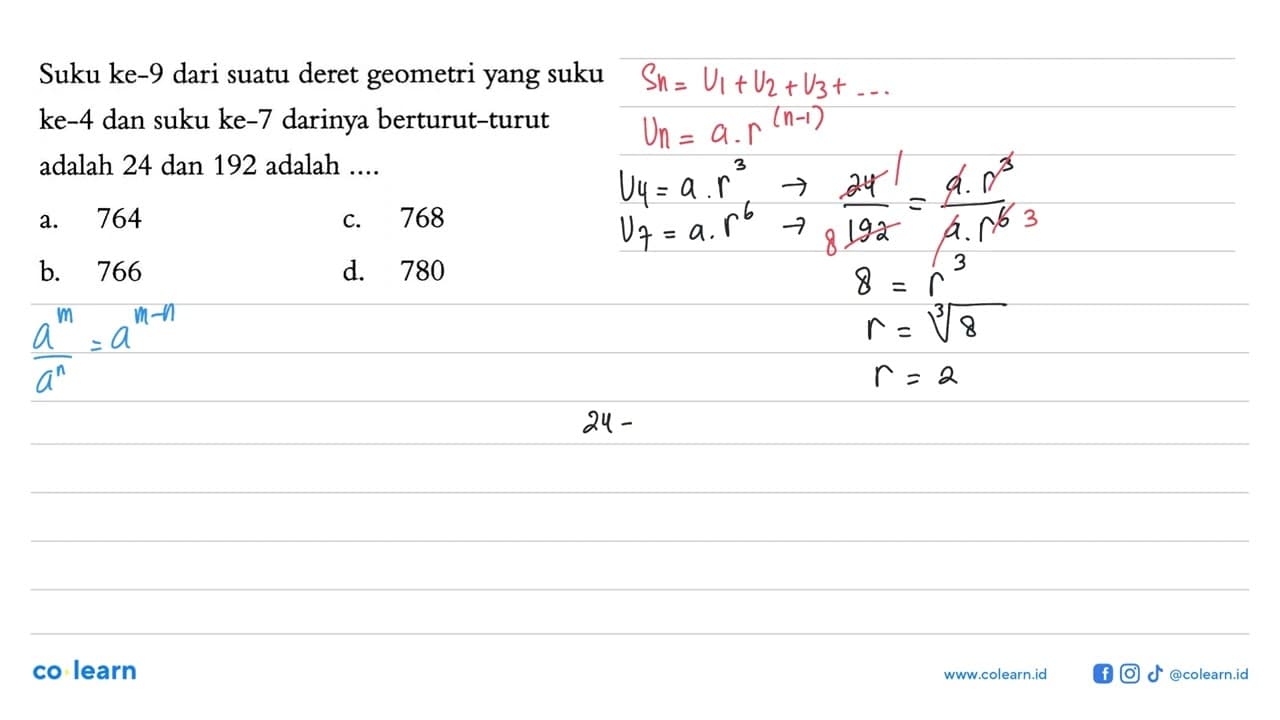 Suku ke-9 dari suatu deret geometri yang suku
ke-4 dan suku ke-7 darinya berturut-turut
adalah 24 dan 192 adalah ....
a. 764 c. 768
b. 766 d. 780
Sn = U1 + U2 + U3 + ...
Un = a.r^(n-1)
U4 = a.r^3 → 24/192 = a.r^3/a.r^6
U7 = a.r^6 →
1
8
3
8 = r^3
r = ∛8
r = 2
a^m/a^n = a^m-n
24 -
co learn
www.colearn.id @colearn.id